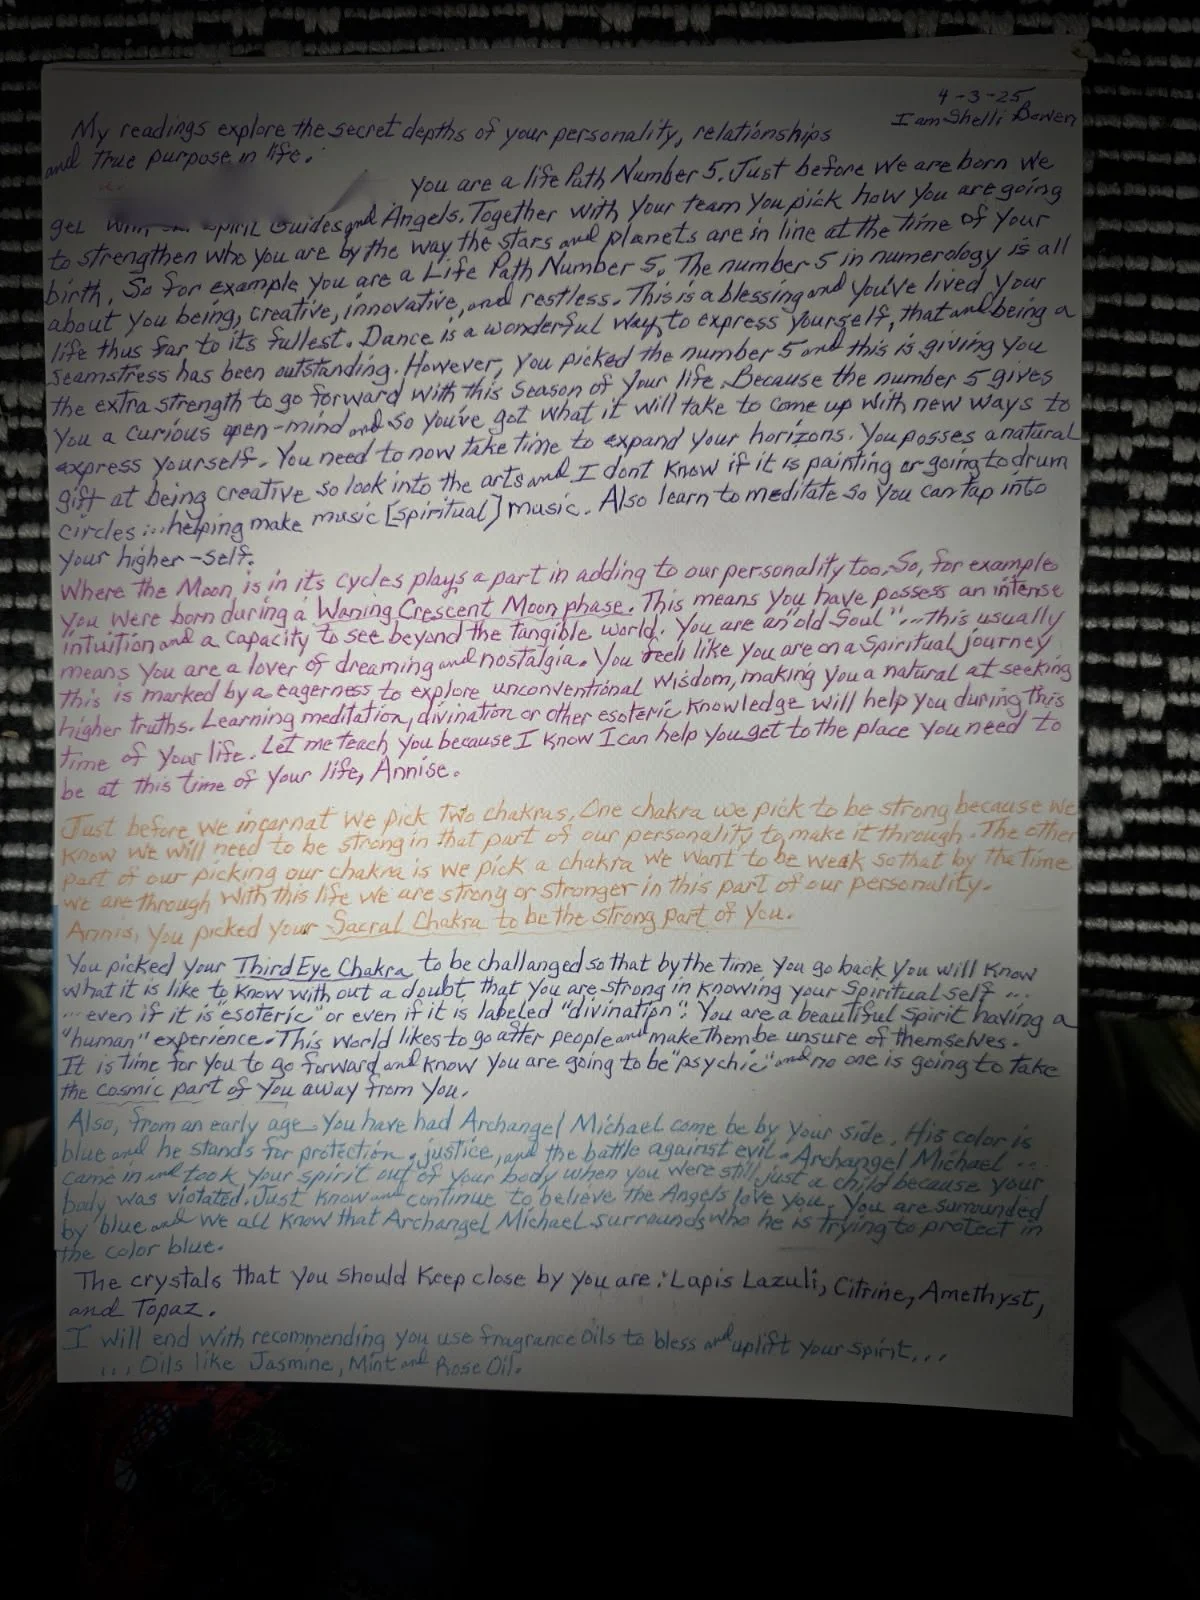 4-3-25
I am Shelli Bowen
My readings explore the secret depths of your personality, relationships
and true purpose in life.
You are a life Path Number 5. Just before we are born we
get with Spirit Guides and Angels. Together with your team you pick how you are going
to strengthen who you are by the way the stars and planets are in line at the time of your
birth. So for example you are a Life Path Number 5. The number 5 in numerology is all
about you being, creative, innovative, and restless. This is a blessing and you've lived your
life thus far to its fullest. Dance is a wonderful way to express yourself, that and being a
seamstress has been outstanding. However, you picked the number 5 and this is giving you
the extra strength to go forward with this season of your life. Because the number 5 gives
you a curious open-mind and so you've got what it will take to come up with new ways to
express yourself. You need to now take time to expand your horizons. You posses a natural
gift at being creative so look into the arts and I dont know if it is painting or going to drum
circles... helping make music [spiritual] music. Also learn to meditate so you can tap into
your higher-self.
Where the Moon is in its cycles plays a part in adding to our personality too. So, for example
you were born during a Waning Crescent Moon phase. This means you have possess an intense
intuition and a capacity to see beyond the tangible world. You are an "old Soul"... this usually
means you are a lover of dreaming and nostalgia. You feell like you are on a Spiritual journey
this is marked by a eagerness to explore unconventional wisdom, making you a natural at seeking
higher truths. Learning meditation, divination or other esoteric knowledge will help you during this
time of your life. Let me teach you because I know I can help you get to the place you need to
be at this time of your life, Annise.
Just before we incarnat we pick two chakras. One chakra we pick to be strong because we
know we will need to be strong in that part of our personality to make it through. The other
part of our picking our chakra is we pick a chakra we want to be weak so that by the time
we are through with this life we are strong or stronger in this part of our personality.
Annis, you picked your Sacral Chakra to be the strong part of you.
You picked your Third Eye Chakra to be challanged so that by the time you go back you will know
what it is like to know with out a doubt that you are strong in knowing your Spiritual self ...
... even if it is "esoteric" or even if it is labeled "divination". You are a beautiful spirit having a
"human" experience. This world likes to go after people and make them be unsure of themselves.
It is time for you to go forward and know you are going to be "psychic" and no one is going to take
the cosmic part of you away from you.
Also, from an early age you have had Archangel Michael come be by your side. His color is
blue and he stands for protection, justice, and the battle against evil. Archangel Michael ...
came in and took your spirit out of your body when you were still just a child because your
body was violated. Just know and continue to believe the Angels love you. You are surrounded
by blue and we all know that Archangel Michael surrounds who he is trying to protect in
the color blue.
The crystals that you should keep close by you are: Lapis Lazuli, Citrine, Amethyst,
and Topaz.
I will end with recommending you use fragrance oils to bless and uplift your spirit...
... Oils like Jasmine, Mint and Rose Oil.